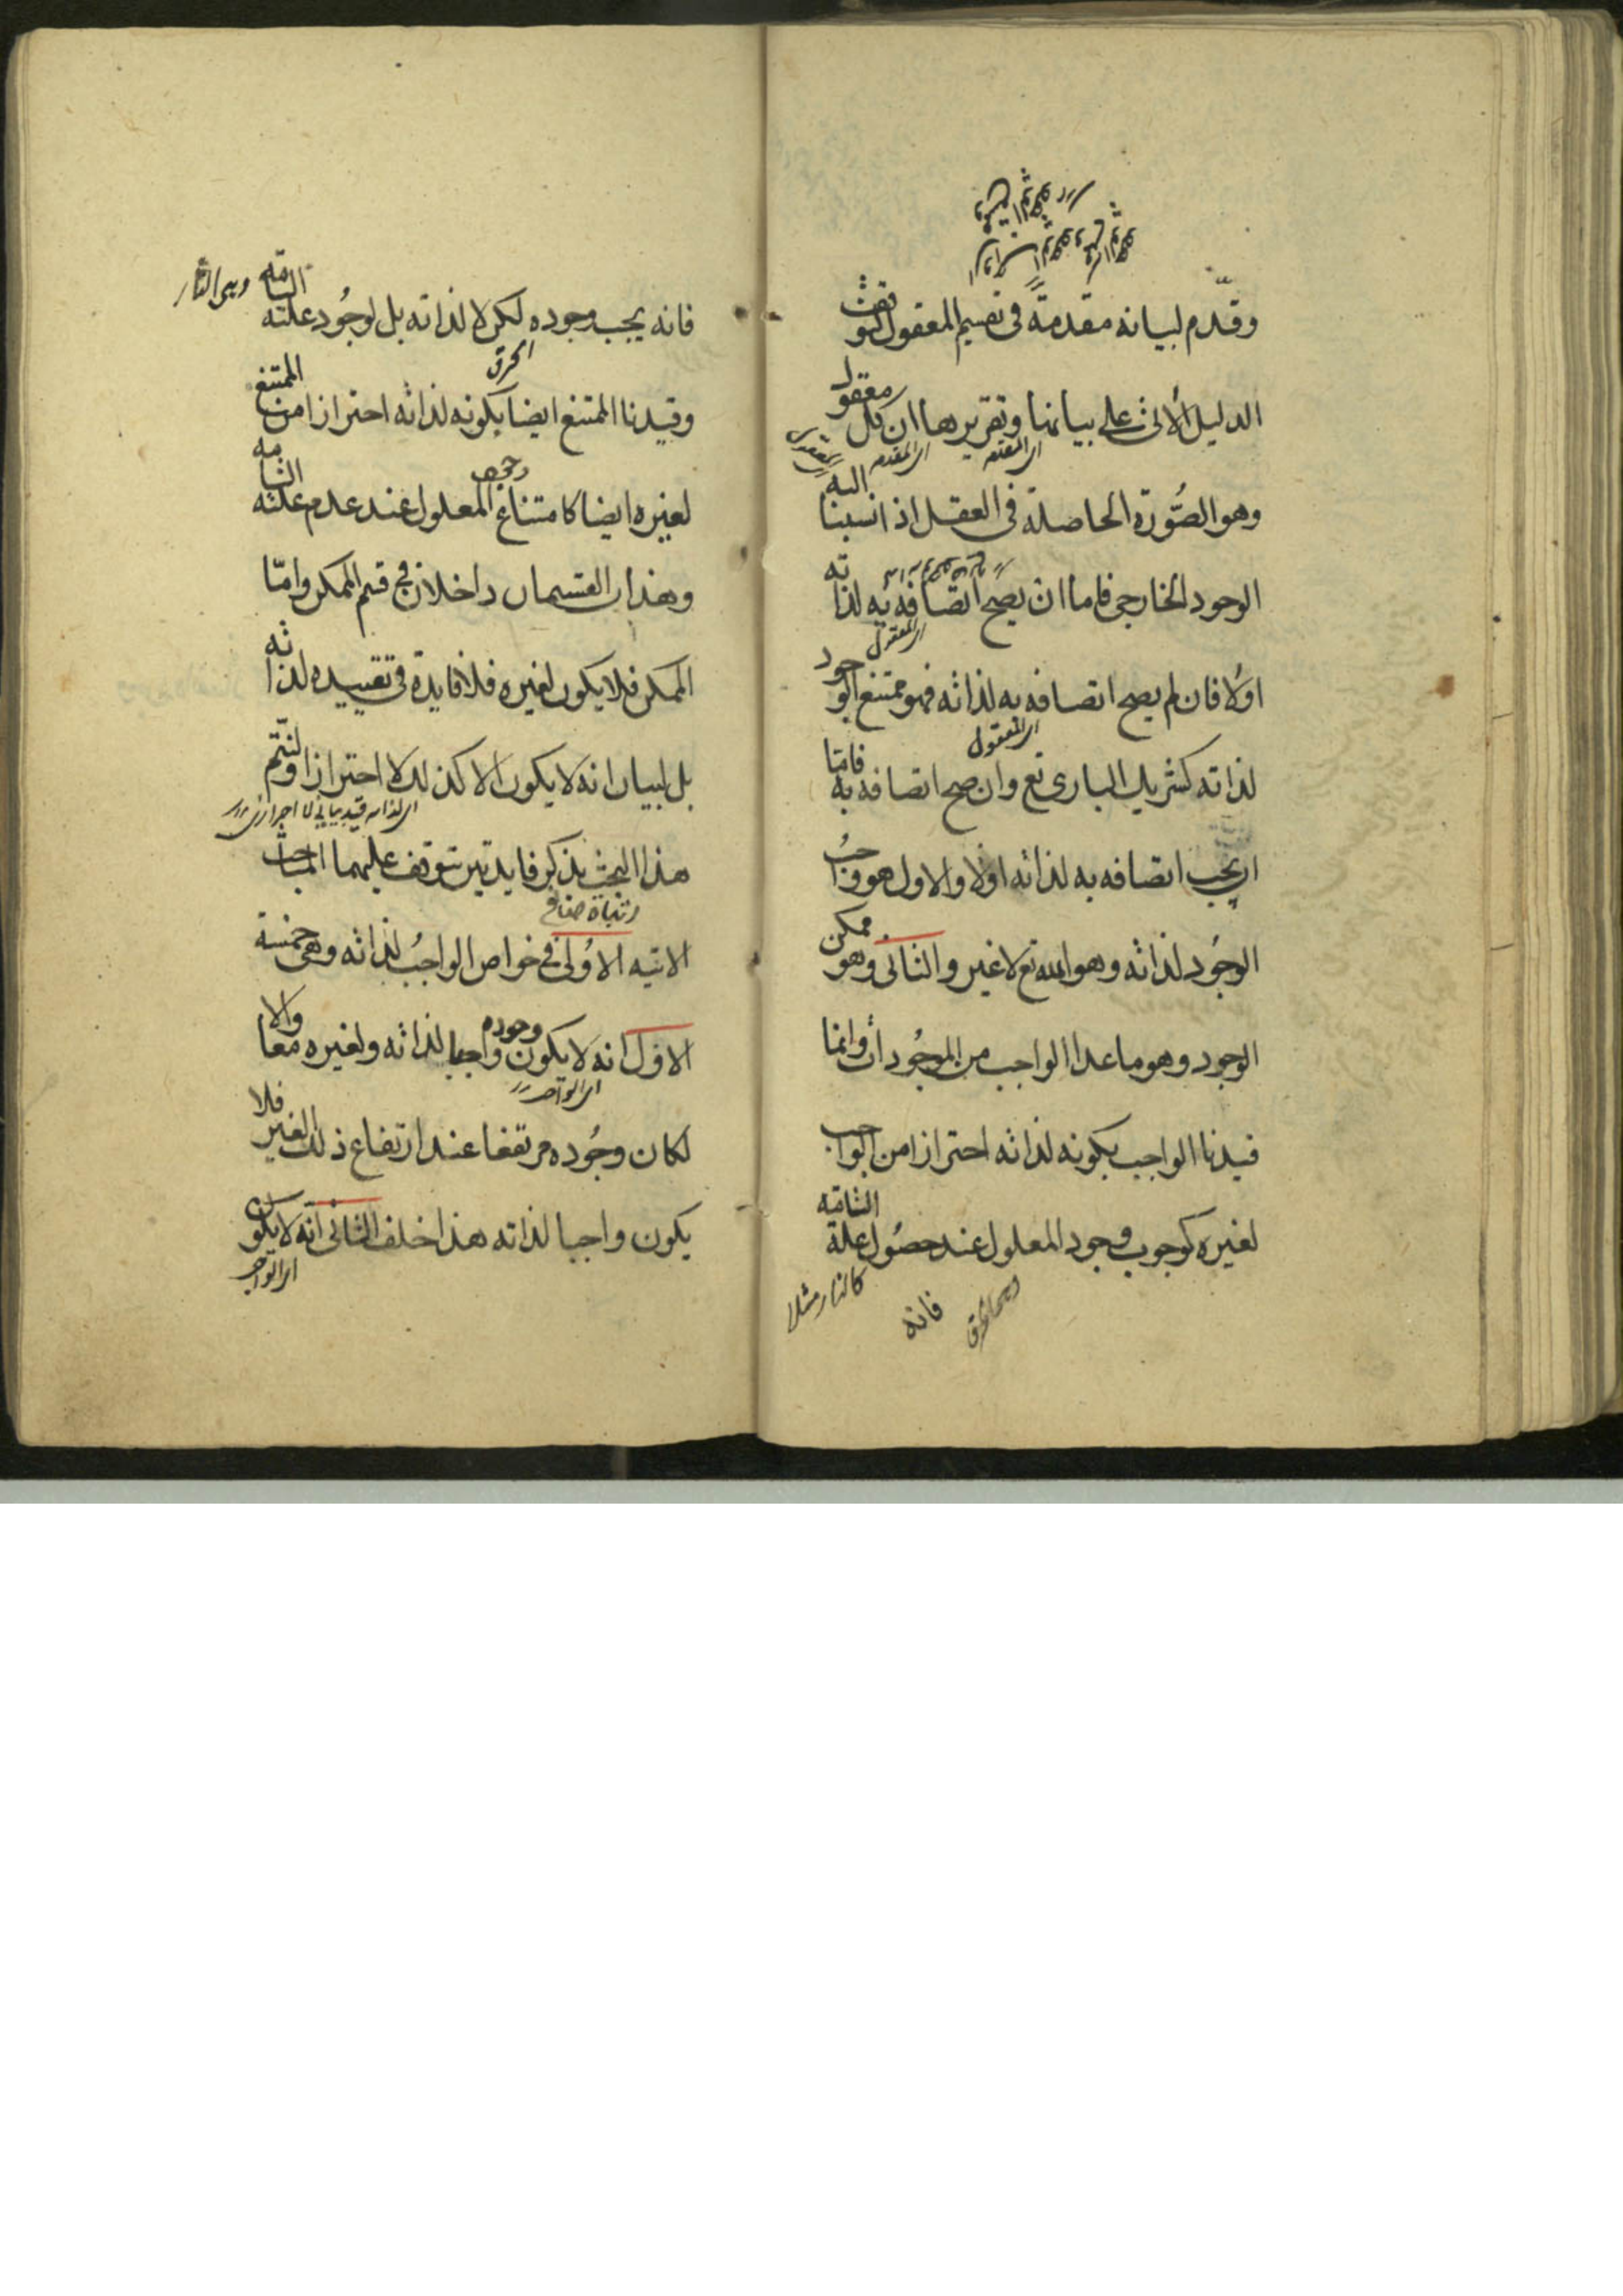 وقدم لبيانه مقدمة فى تقسيم المعقول لتوقف
الدليل الاتى على بيانها وتقريرها ان كل معقول
اى المقدمه
اى المقدمه
وهو الصورة الحاصلة فى العقل اذا نسبنا اليه
الوجود الخارجى فاما ان يصح اتصافه به لذاته
اى المعقول
اولا فان لم يصح اتصافه به لذاته فهو ممتنع الوجود
اى المعقول
لذاته كشريك البارى تع وان صح اتصافه به فاما
ان يجب اتصافه به لذاته اولا والاول هو واجب
الوجود لذاته وهو الله تع لا غير والثانى وهو ممكن
الوجود وهو ما عدا الواجب من الموجودات وانما
قيدنا الواجب بكونه لذاته احترازا من الواجب
لغيره كوجوب وجود المعلول عند حصول علة التامه
كالنار مثلا
فانه
فانه يجب وجوده لكن لا لذاته بل لوجود علته التامه
وهى النار
الحرق
وقيدنا الممتنع ايضا بكونه لذاته احترازا من الممتنع
لغيره ايضا كامتناع المعلول عند عدم علته التامه
وهذان القسمان داخلان فى قسم الممكن واما
الممكن فلا يكون لغيره فلا فايدة فى تقييده لذاته
بل لبيان انه لا يكون الا كذلك لا احترازا ولنتم
هذا البحث بذكر فايدتين يتوقف عليهما المباحث
الاتيه الاولى فى خواص الواجب لذاته وهى خمسة
الاول انه لا يكون وجوده واجبا لذاته ولغيره معا والا
اى الواجب
لكان وجوده مرتفعا عند ارتفاع ذلك الغير فلا
يكون واجبا لذاته هذا خلف الثانى انه لا يكون
اى الواجب